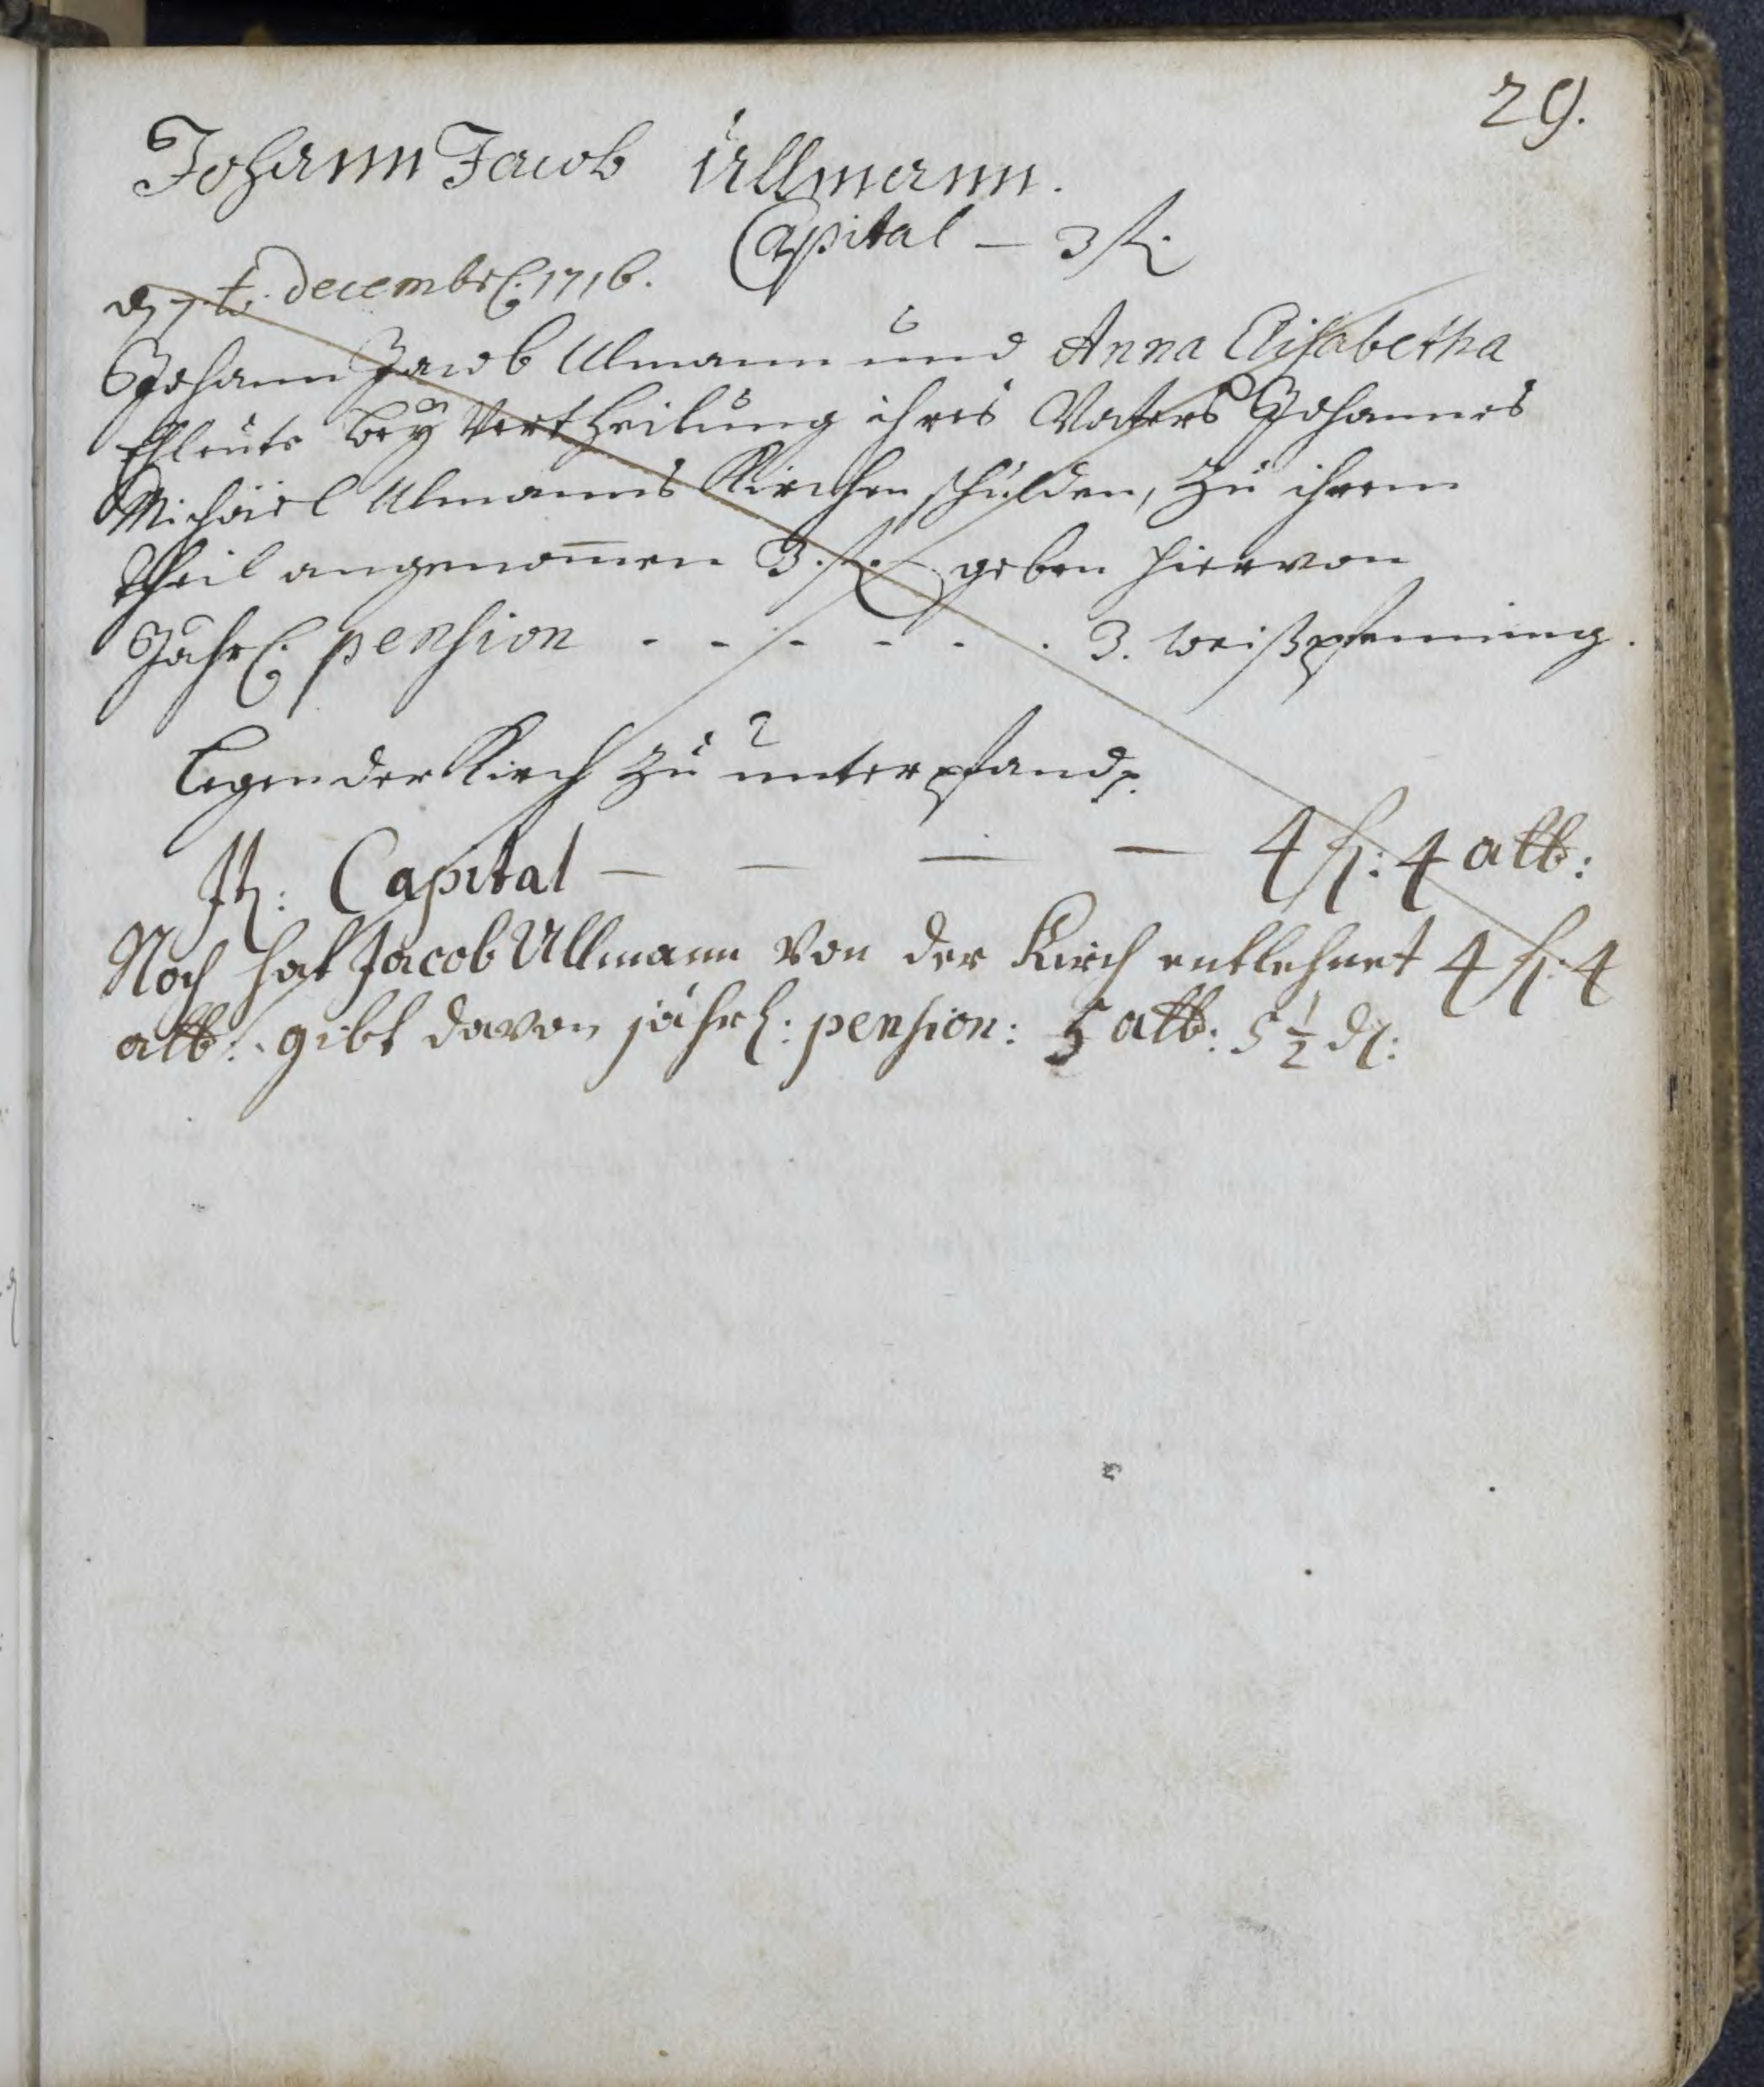 29.
Johann Jacob Ullmann.
Capital — 3 fl.
d. 7.t. decembrl. 1716.
Johann Jacob Ulmann und Anna Elisabetha
Ehleute bey Vertheilung ihres Vaters Johannes
Michäel Ulmanns Kirchen schulden, Zu ihrem
theil angenom̄en 3. fl. geben hiervon
Jährl. pension - - - - - . 3. weißpfenning.
Legen der Kirch Zu unterpfand.
It: Capital — — — — 4 fl: 4 alb:
Noch hat Jacob Ullmann von der Kirch entlehnet 4 fl: 4
alb: gibt davon jährl: pension: 5 alb: 5 ½ dl: